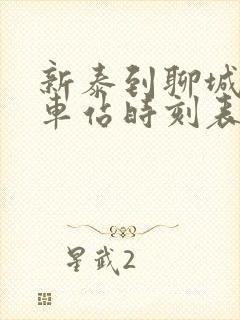 新泰到聊城
車佔時刻表
星武2